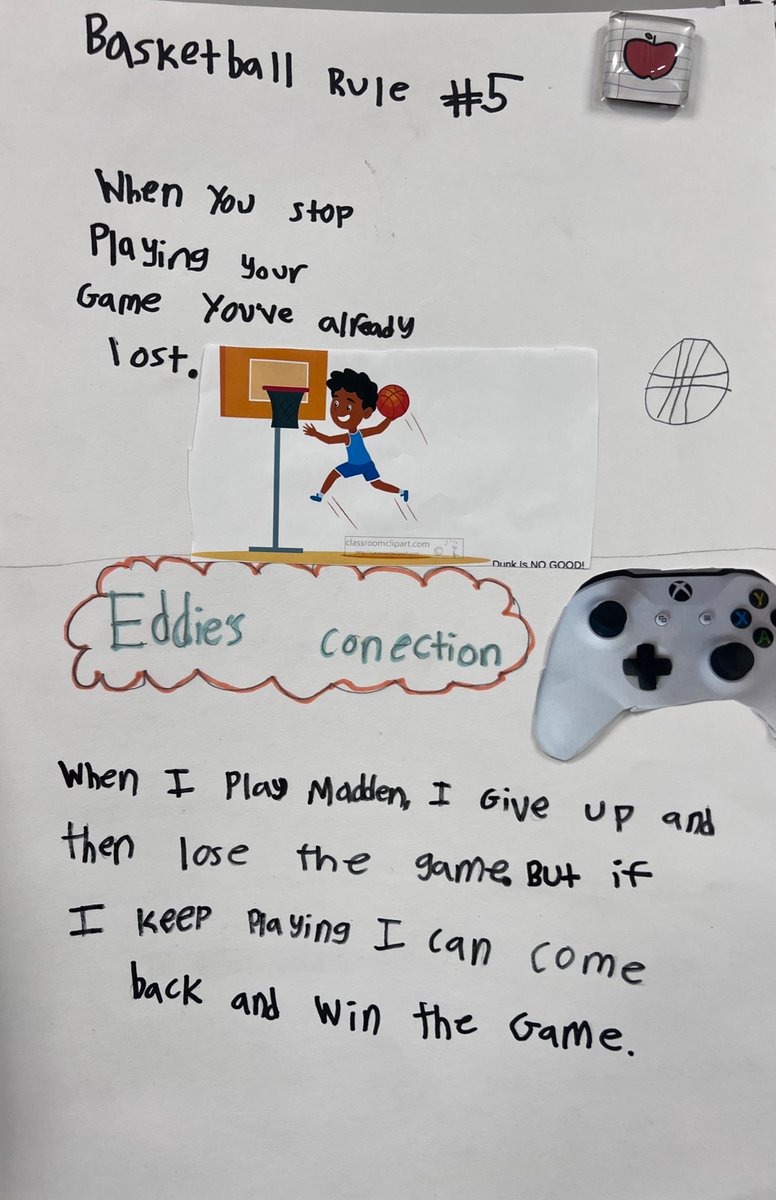 Basketball Rule #5
When You stop
Playing your
Game You've already
lost.
classroomclipart.com
©
Dunk Is NO GOOD!
Eddie's conection
Y
X
A
When I Play Madden, I Give up and
then lose the game. But if
I keep playing I can come
back and win the Game.